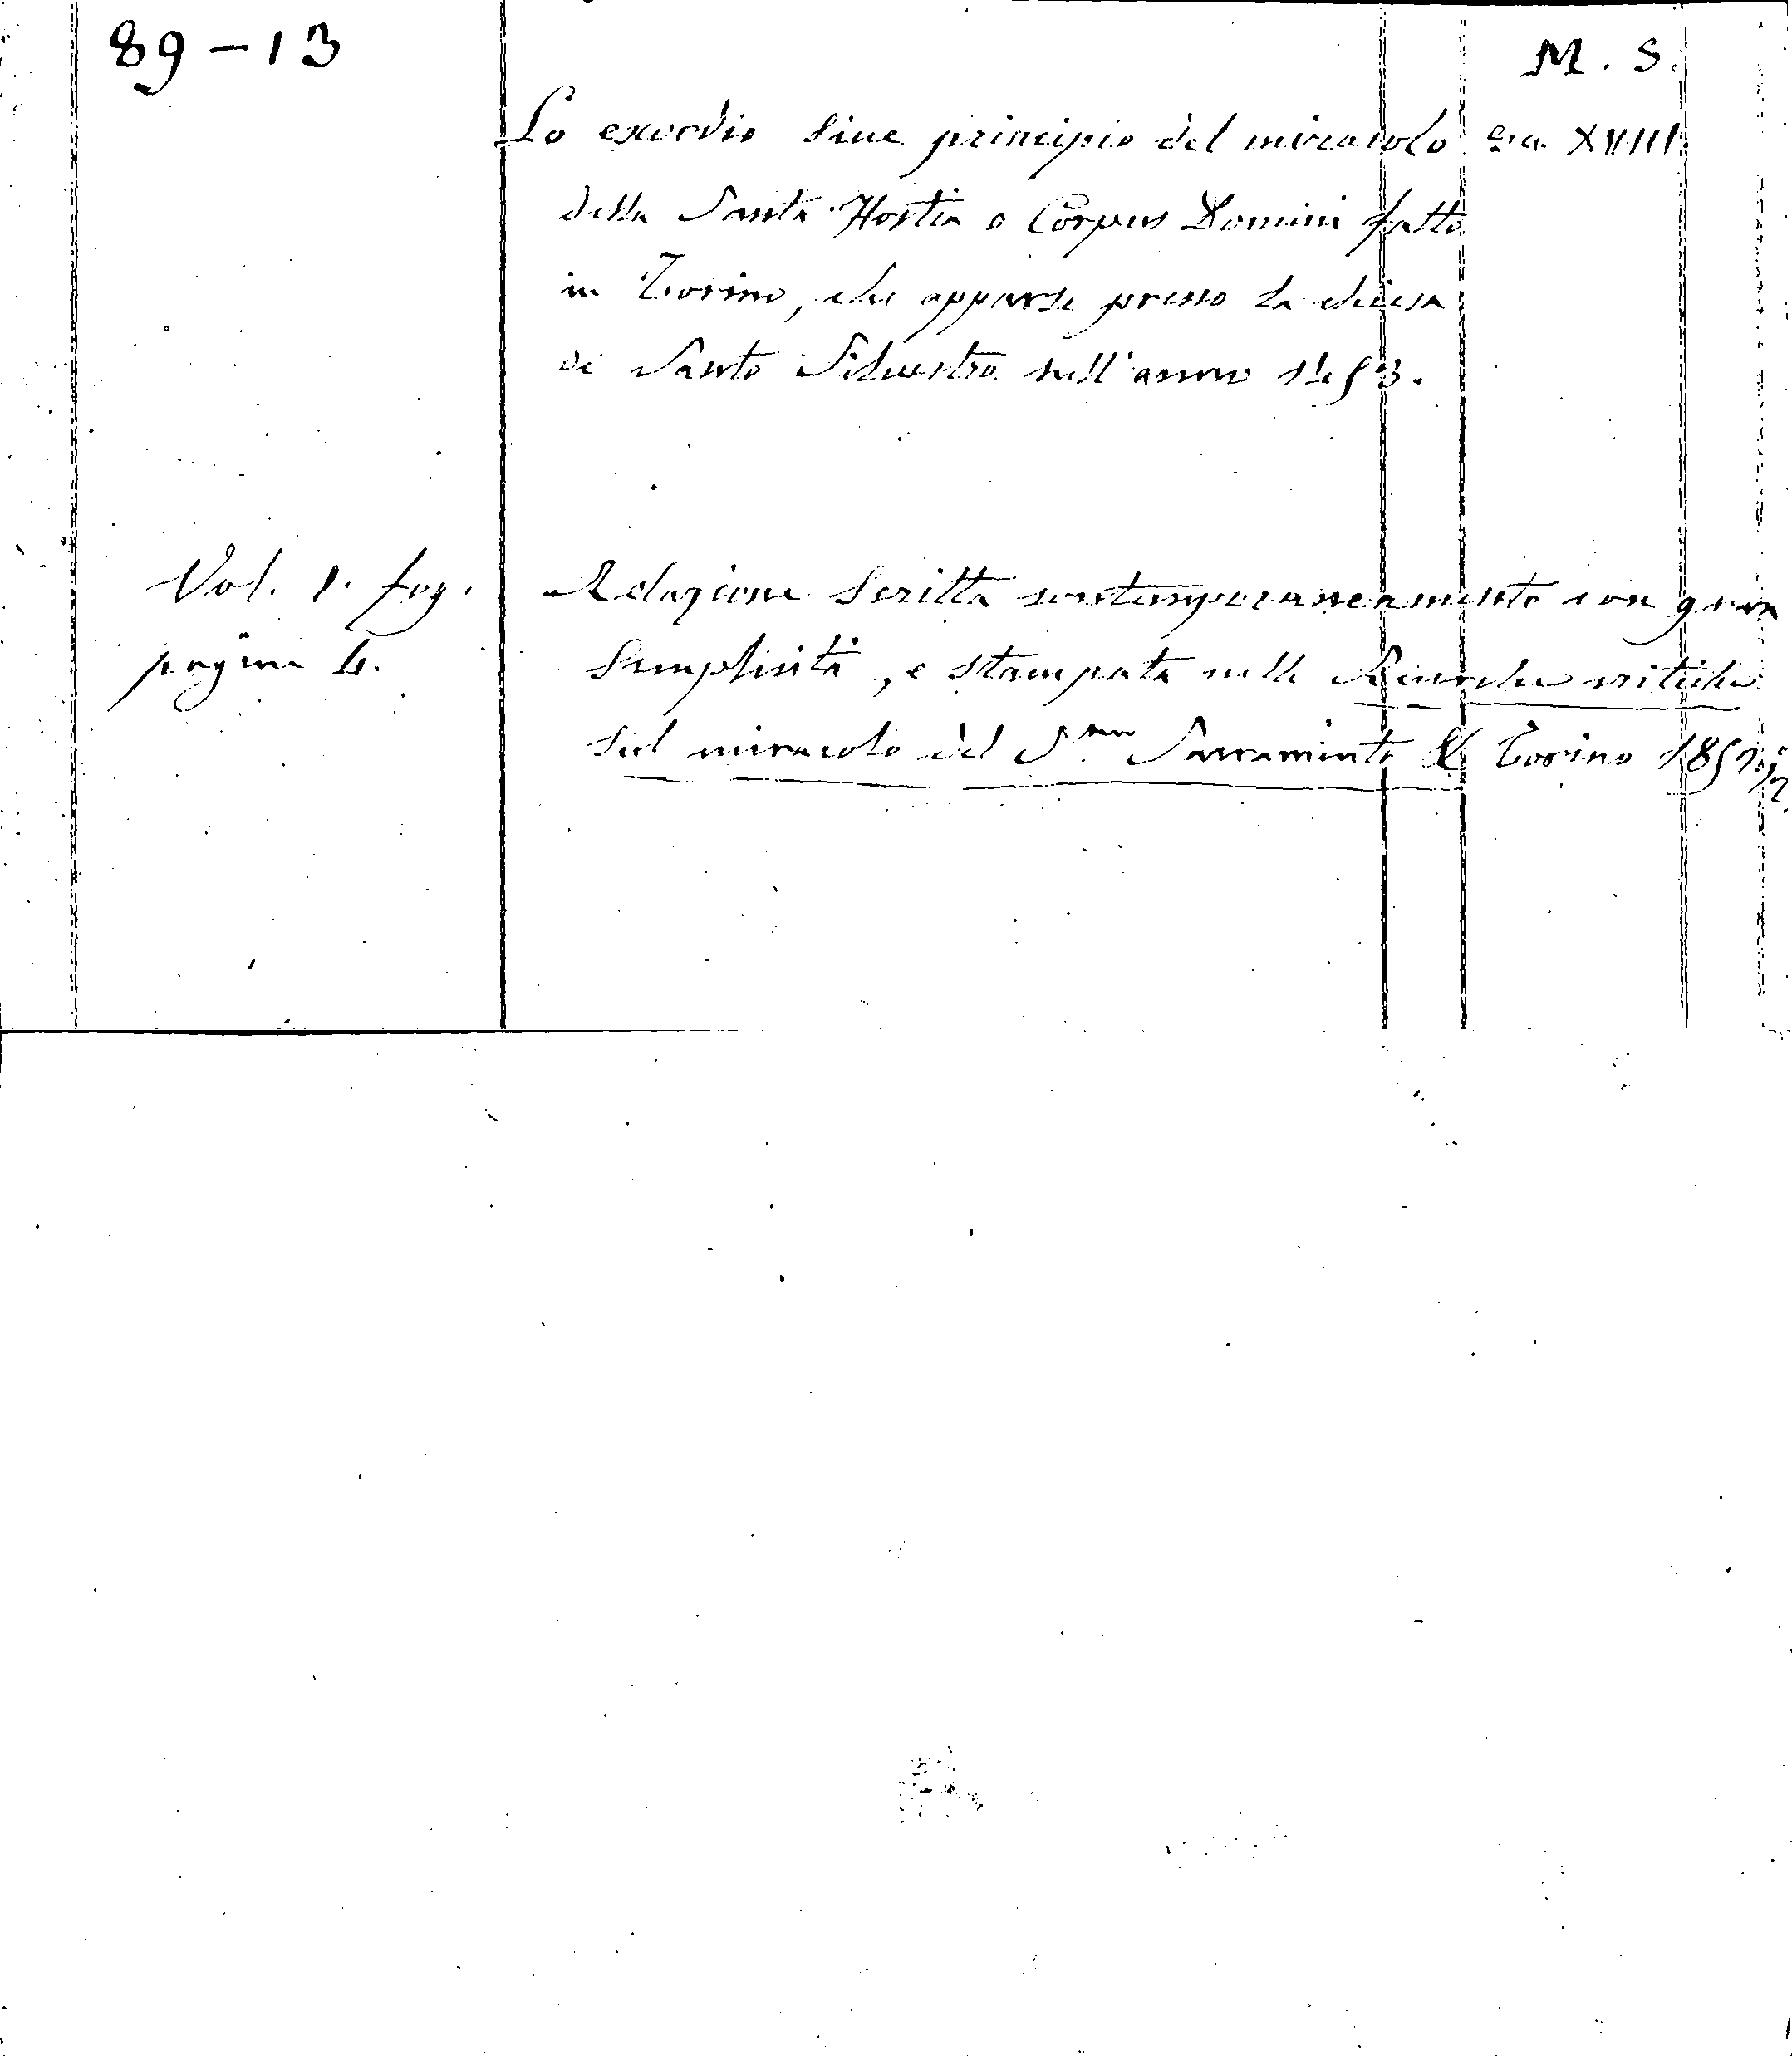 89-13
M. S.
Lo exordio sive principio del miracolo
XVIII.
della Santa Hostia o Corpus Domini fatto
in Torino, che apparse presso la chiesa
di Santo Silvestro nell'anno 1453.
Vol. 1. fog.
pagina 4.
Relazione scritta contemporaneamente con gran
semplicità, e stampata nelle Ricerche critiche
sul miracolo del S.mo Sacramento & Torino